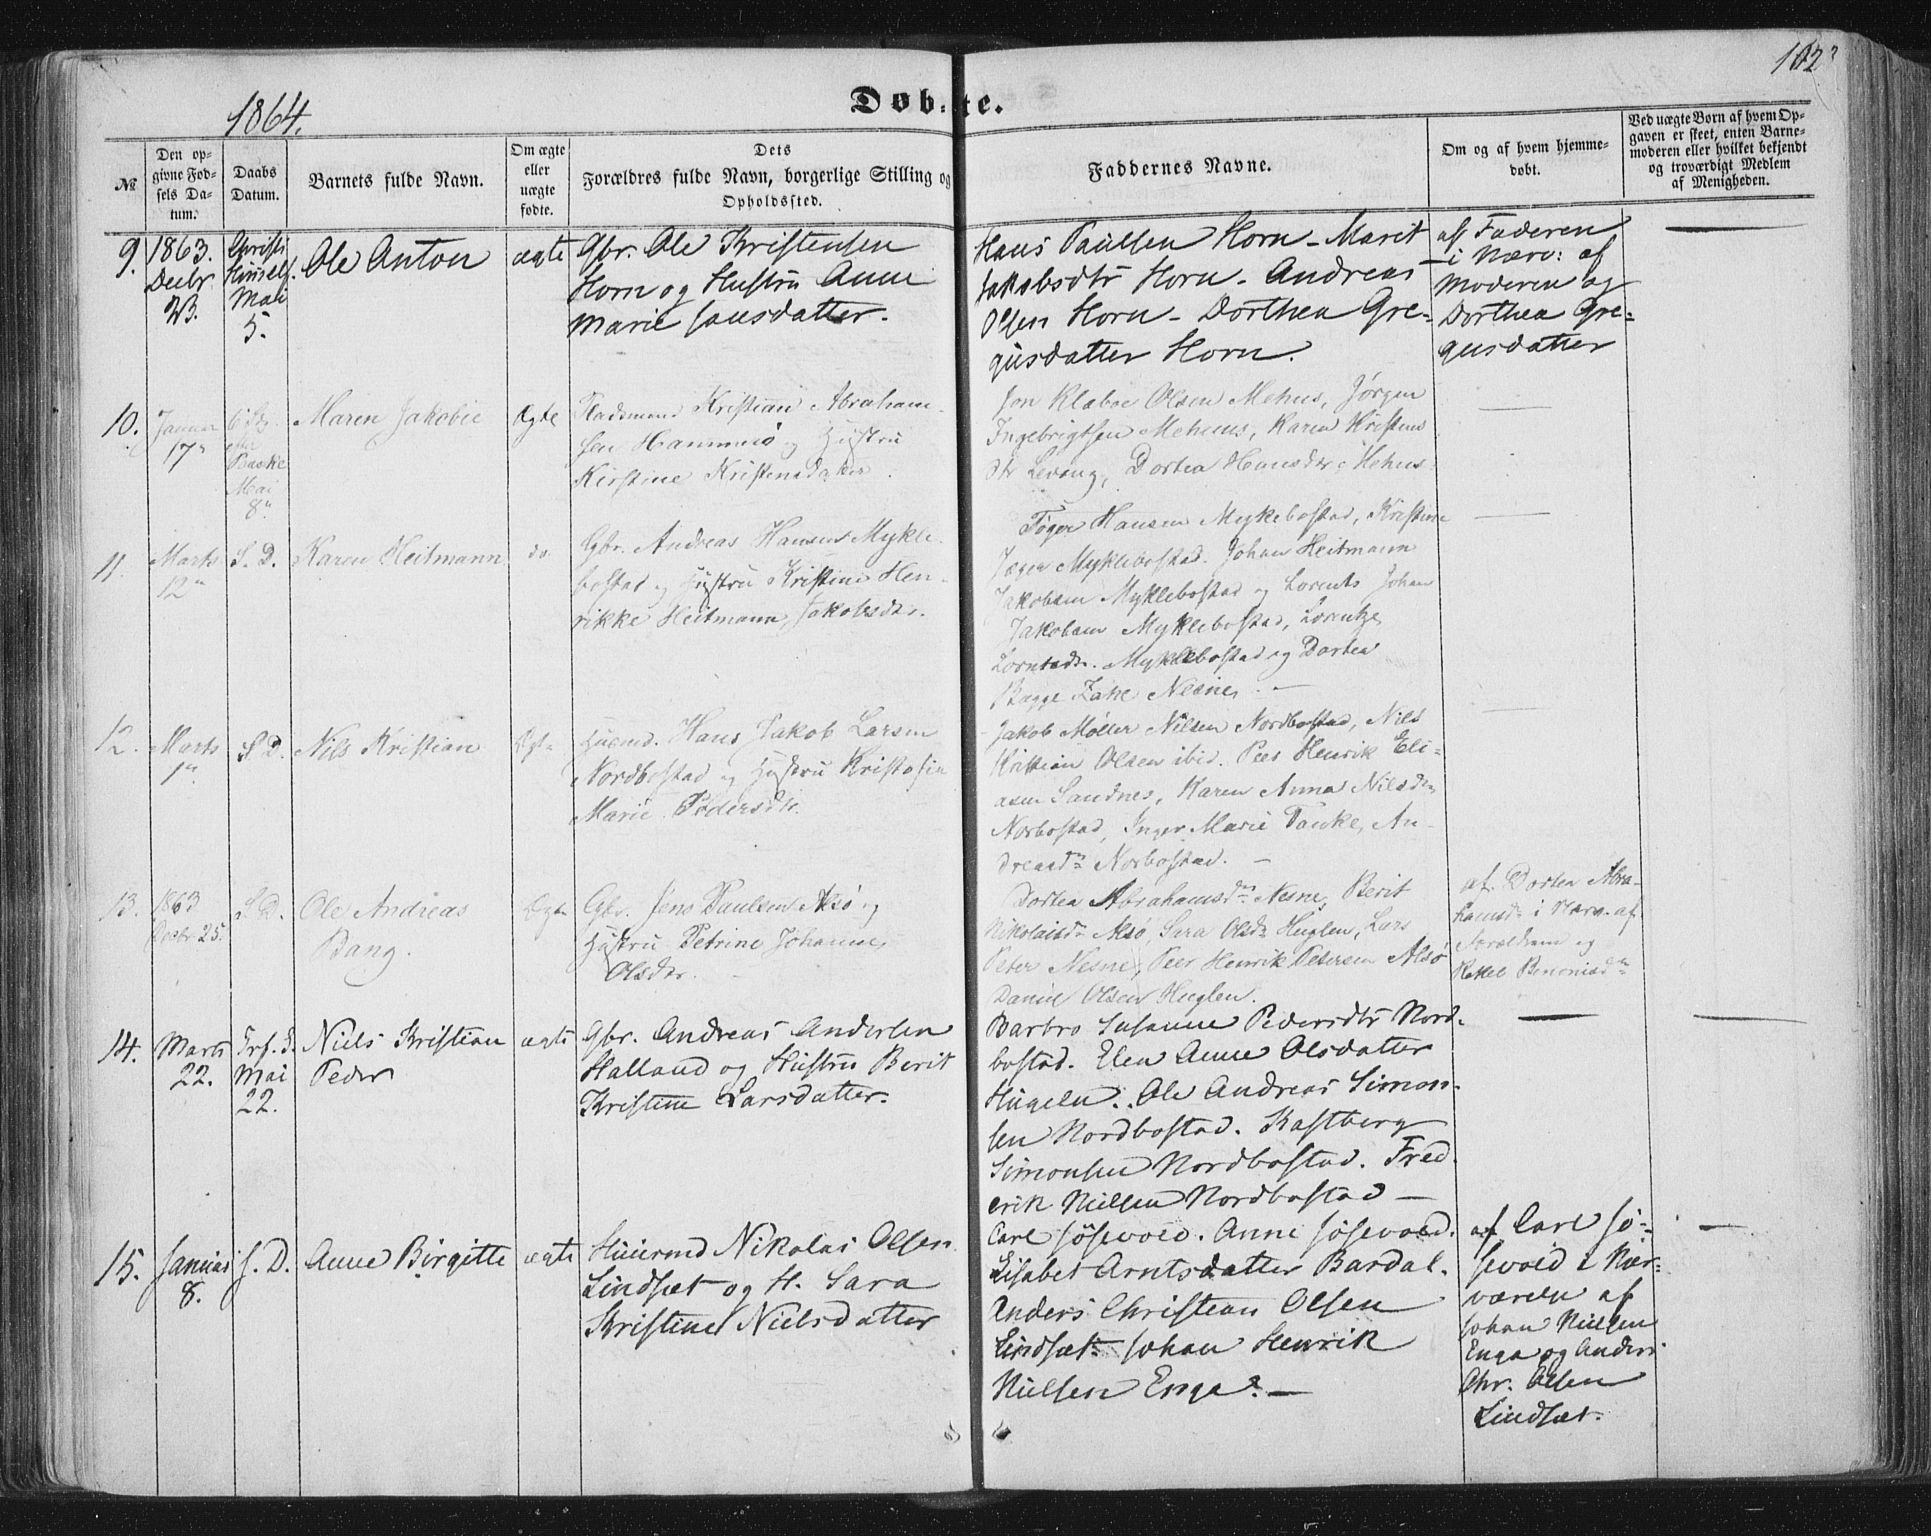 102
1864.
Døbte.
№
Den op-
givne Fød-
sels Da-
tum.
Daabs
Datum.
Barnets fulde Navn.
Om ægte
eller
uægte
fødte.
Dets
Forældres fulde Navn, borgerlige Stilling og
Opholdssted.
Faddernes Navne.
Om og af hvem hjemme-
døbt.
Ved uægte Børn af hvem Op-
gaven er skeet, enten Barne-
moderen eller hvilket bekjendt
og troværdigt Medlem
af Menigheden.
9.
1863.
Decbr
23.
Christi
Himelf.
Mai
5.
Ole Anton
ægte
Gbr. Ole Kristensen
Horn og Hustru Anne
Marie Jansdatter.
Hans Paulsen Horn - Marit
Jakobsdtr Horn - Andreas
Olsen Horn - Dorthea Gre-
gusdatter Horn.
af Faderen
i Nærv: af
Moderen og
Dorthea Gre-
gusdatter
10.
Januar
17
Paaske
Mai
8
Maren Jakobie
Ægte
Pladsmand Kristian Abraham-
sen Hammerø og Hustru
Kirstine Kristensdatter.
Jon Klæboe Olsen Mehus, Jørgen
Ingebrigtsen Mehuus, Karen Kristens
dtr Levang, Dortea Hansdtr Mehus
11.
Marts
12
S. D.
Karen Heitmann
do
Gbr. Andreas Hansen Mykle-
bostad og Hustru Kristine Hen-
rikke Heitmann, Jakobsdtr.
Tøger Hansen Myklebostad, Kristine
Jæger Myklebostad. Johan Heitmann
Jakobsen Myklebostad og Lorents Johan
Jakobsen Myklebostad, Lorentze
Lorntsdtr. Myklebostad og Dortea
Bagge Zahl Nesne. -
12.
Marts
1
S. D.
Nils Kristian
Ægte
Huusmd. Hans Jakob Larsen
Nordbostad og Hustru Kristofin
Marie Pedersdtr.
Jakob Møller Nilsen Nordbostad, Nils
Kristian Olsen ibid. Peer Henrik Eli-
asen Sandnes, Karen Anna Nilsdtr
Norbostad, Inger Marie Tanke, An-
dreasdtr Norbostad. -
13.
1863
Decbr 25.
S. D.
Ole Andreas
Bang.
Ægte
Gbr. Jens Paulsen Alsø og
Hustru Petrine Johanna
Olsdtr.
Dortea Abrahamsdtr Nesne, Berit
Nikolaisdtr Alsø, Sara Olsdtr Huglen, Lars
Peter Nesne, Peer Henrik Petersen Alsø
Daniel Olsen Huglen.
af. Dortea Abra-
hamsdtr i Nærv. af
Forældrene og
Rakel Benoniasdtr
14.
Marts
22.
Mai
22.
Niels Kristian
Peder
ægte
Gbr. Andreas Andersen
Halland og Hustru Berit
Kristine Larsdatter.
Barbro Susanne Pedersdtr Nord-
bostad. Elen Anne Olsdatter
Hugeln. Ole Andreas Simon-
sen Nordbostad. Kastberg
Simonsen Nordbostad. Fred-
erik Nielsen Nordbostad -
15.
Januar
8.
S. D.
Anne Birgitte
ægte
Huusmd Nikolai Olsen
Lindset og H. Sara
Kristine Nielsdatter
Carl Jøsevold. Anne Jøsevold.
Lisabet Arntsdatter Bardal.
Anders Christian Olsen
Lindset. Johan Henrik
Nielsen Enga. -
af Carl Jø-
sevold i Nær-
værelse af
Johan Nielsen
Enga og Anders
Chr. Olsen
Lindset.